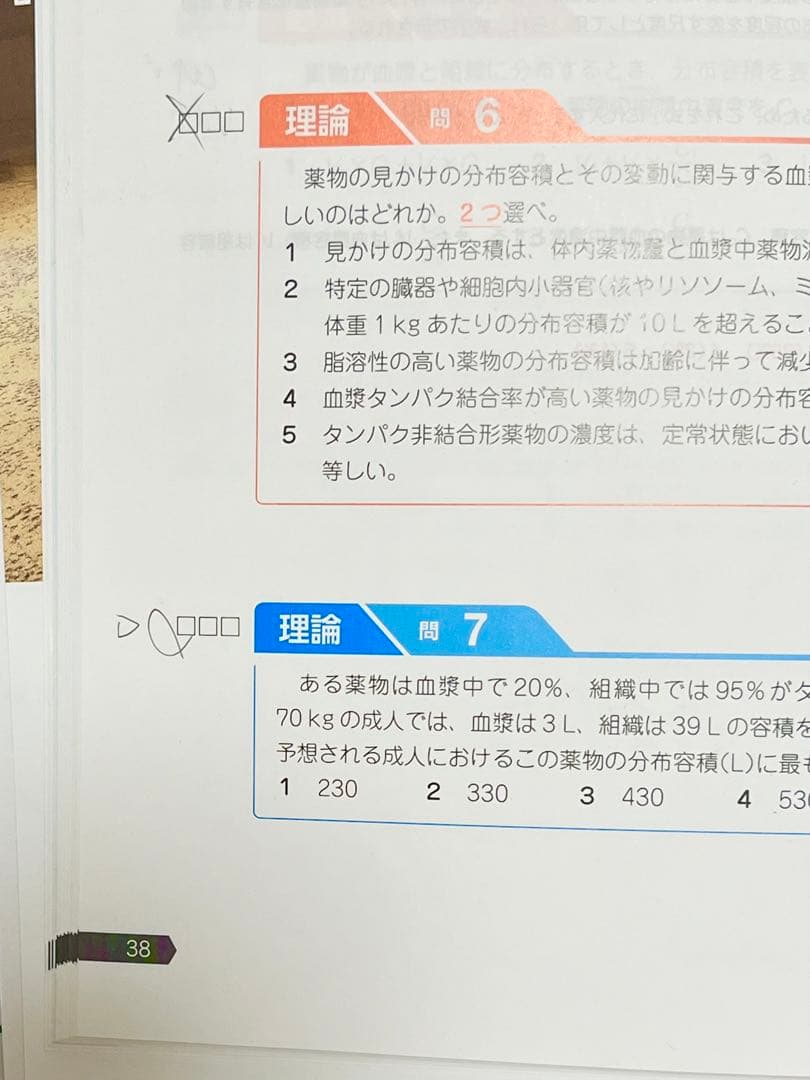 理論 問 6
薬物の見かけの分布容積とその変動に関与する血
しいのはどれか。2つ選べ。
1 見かけの分布容積は、体内薬物量と血漿中薬物
2 特定の臓器や細胞内小器官(核やリソソーム、ミ
体重1kgあたりの分布容積が10Lを超えるこ
3 脂溶性の高い薬物の分布容積は加齢に伴って減
4 血漿タンパク結合率が高い薬物の見かけの分布容
5 タンパク非結合形薬物の濃度は、定常状態におい
等しい。
理論 問 7
ある薬物は血漿中で20%、組織中では95%がタ
70kgの成人では、血漿は3L、組織は39Lの容積を
予想される成人におけるこの薬物の分布容積(L)に最も
1 230 2 330 3 430 4 530
38